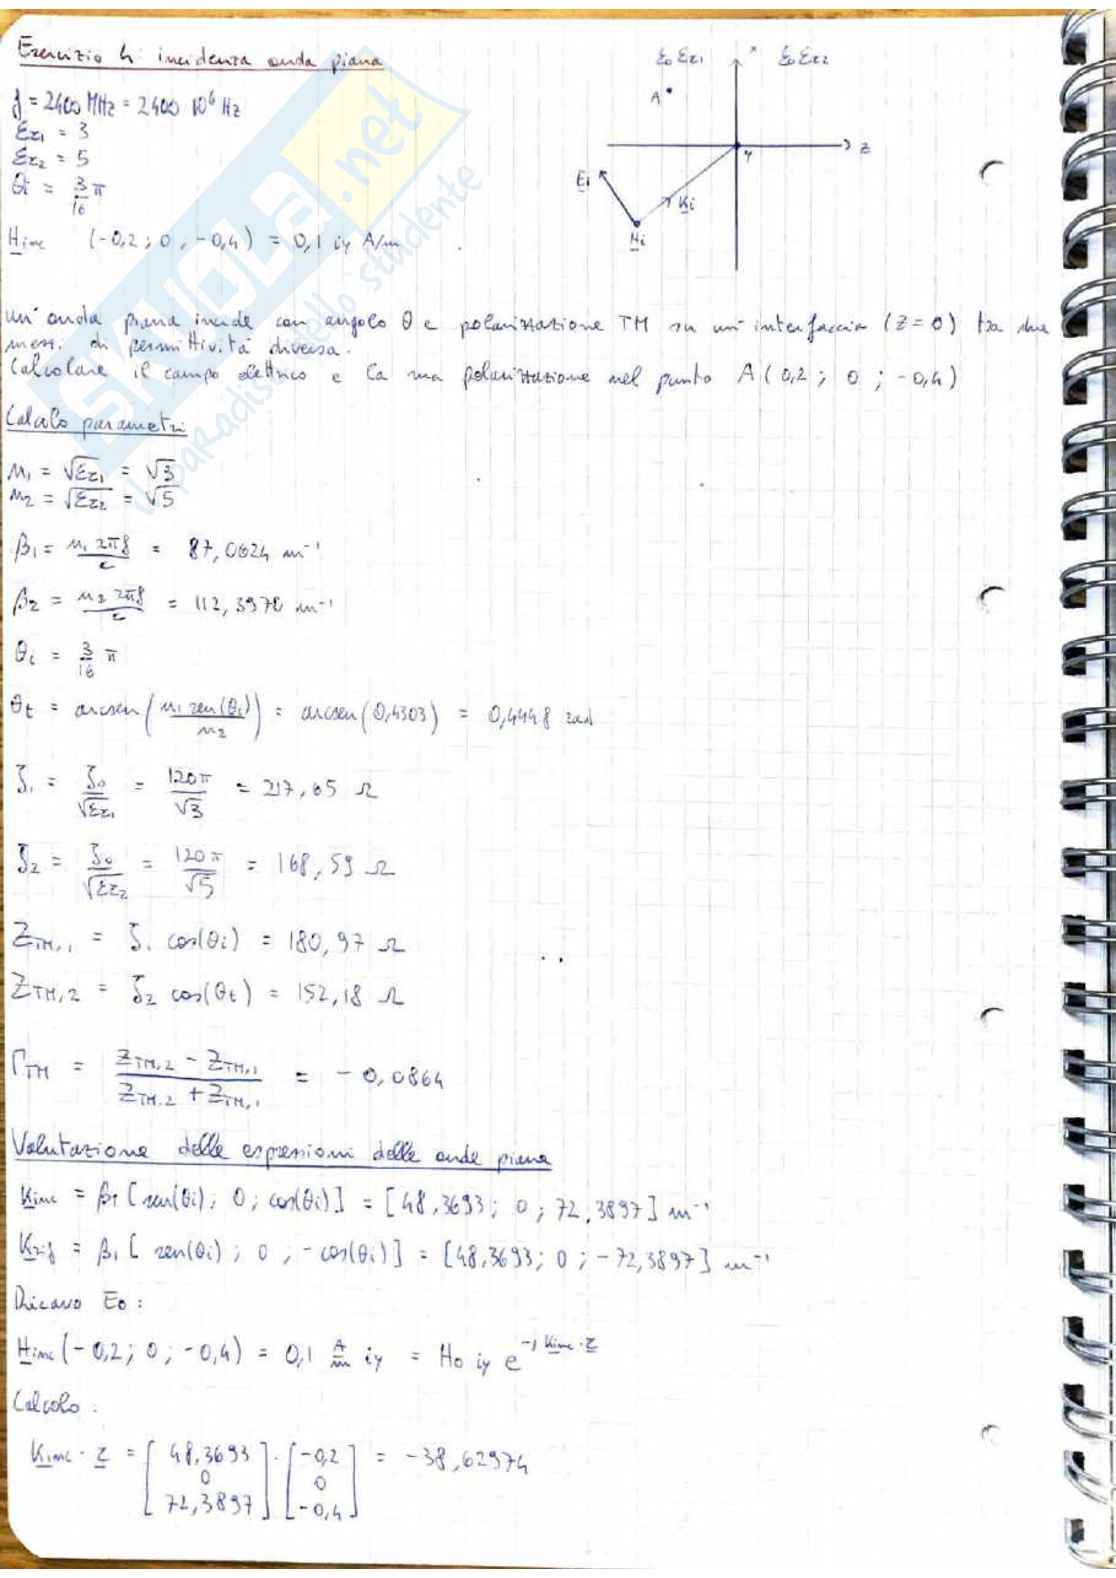 Esercizio 4: incidenza onda piana
f = 2400 MHz = 2400 10⁶ Hz
εr1 = 3
εr2 = 5
θi = 3/16 π
Hinc (-0,2 ; 0 ; -0,4) = 0,1 iy A/m
ε0 εr1
x
ε0 εr2
A
z
y
Ei
Ki
Hi
un'onda piana incide con angolo θ e polarizzazione TM su un'interfaccia (z=0) tra due
mezzi di permittività diversa.
Calcolare il campo elettrico e la sua polarizzazione nel punto A (0,2 ; 0 ; -0,4)
Calcolo parametri
n1 = √εr1 = √3
n2 = √εr2 = √5
β1 = n1 2πf / c = 87,0624 m⁻¹
β2 = n2 2πf / c = 112,3970 m⁻¹
θi = 3/16 π
θt = arcsen (n1 sen(θi) / n2) = arcsen (0,4303) = 0,4448 rad
ζ1 = ζ0 / √εr1 = 120π / √3 = 217,65 Ω
ζ2 = ζ0 / √εr2 = 120π / √5 = 168,59 Ω
ZTM,1 = ζ1 cos(θi) = 180,97 Ω
ZTM,2 = ζ2 cos(θt) = 152,18 Ω
ΓTM = (ZTM,2 - ZTM,1) / (ZTM,2 + ZTM,1) = -0,0864
Valutazione delle espressioni delle onde piane
Kinc = β1 [sen(θi); 0; cos(θi)] = [48,3693; 0; 72,3897] m⁻¹
Krif = β1 [sen(θi); 0; -cos(θi)] = [48,3693; 0; -72,3897] m⁻¹
Ricavo E0:
Hinc (-0,2; 0; -0,4) = 0,1 A/m iy = H0 iy e^(-j Kinc · r)
Calcolo:
Kinc · r = [48,3693 0 72,3897] · [-0,2 0 -0,4] = -38,62974
SKUOLA.net
il paradiso dello studente